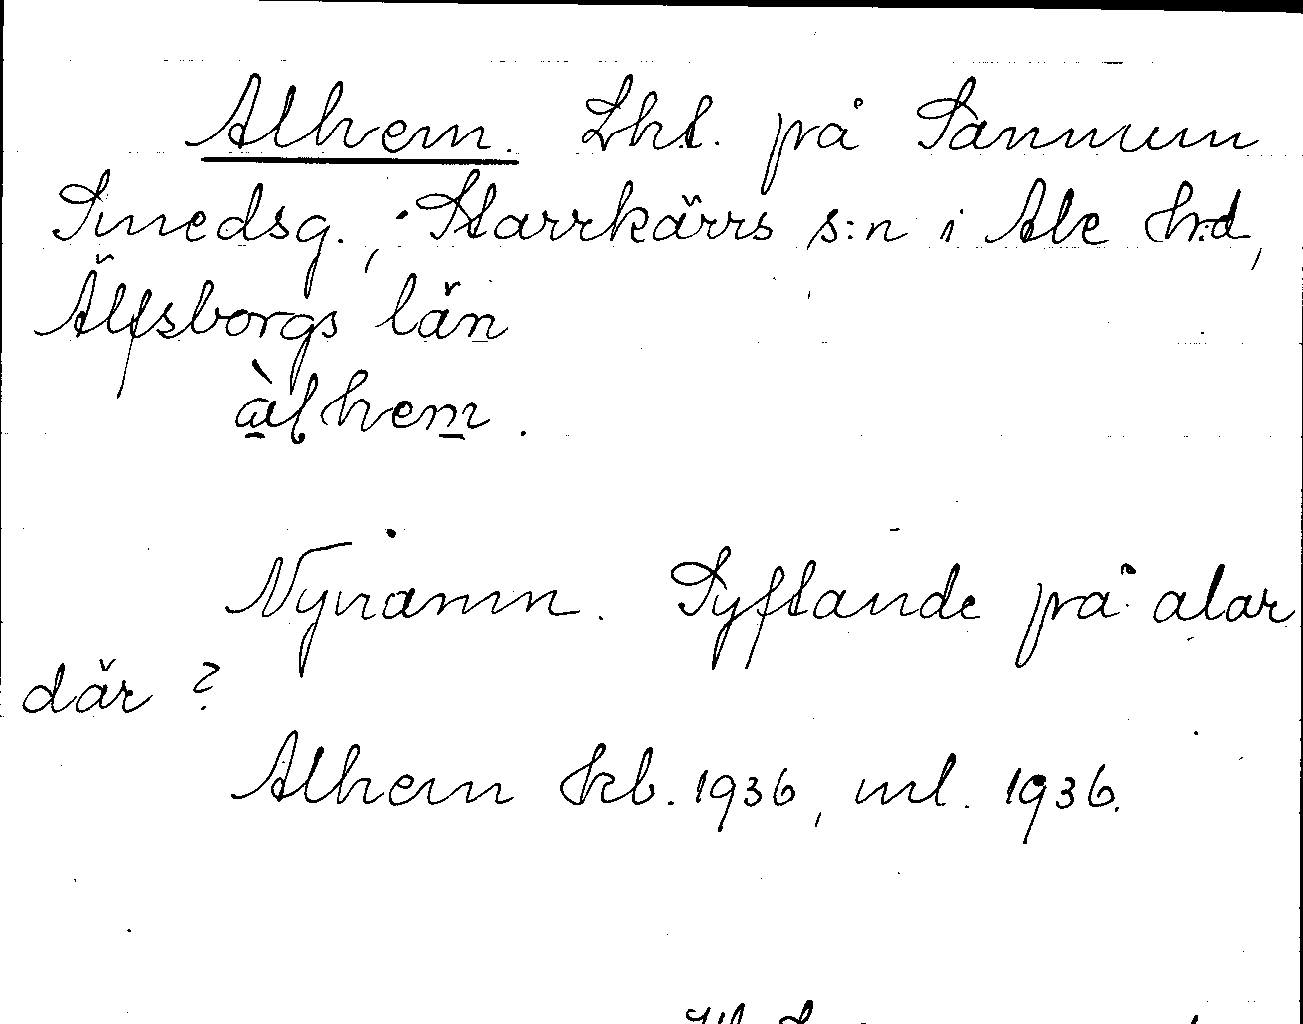 Alhem. Lht. på Sannum
Smedsg., Starrkärrs s:n i Ale hd,
Älfsborgs län
àlhem.
Nynamn. Syftande på alar
där?
Alhem kb. 1936, ml. 1936.